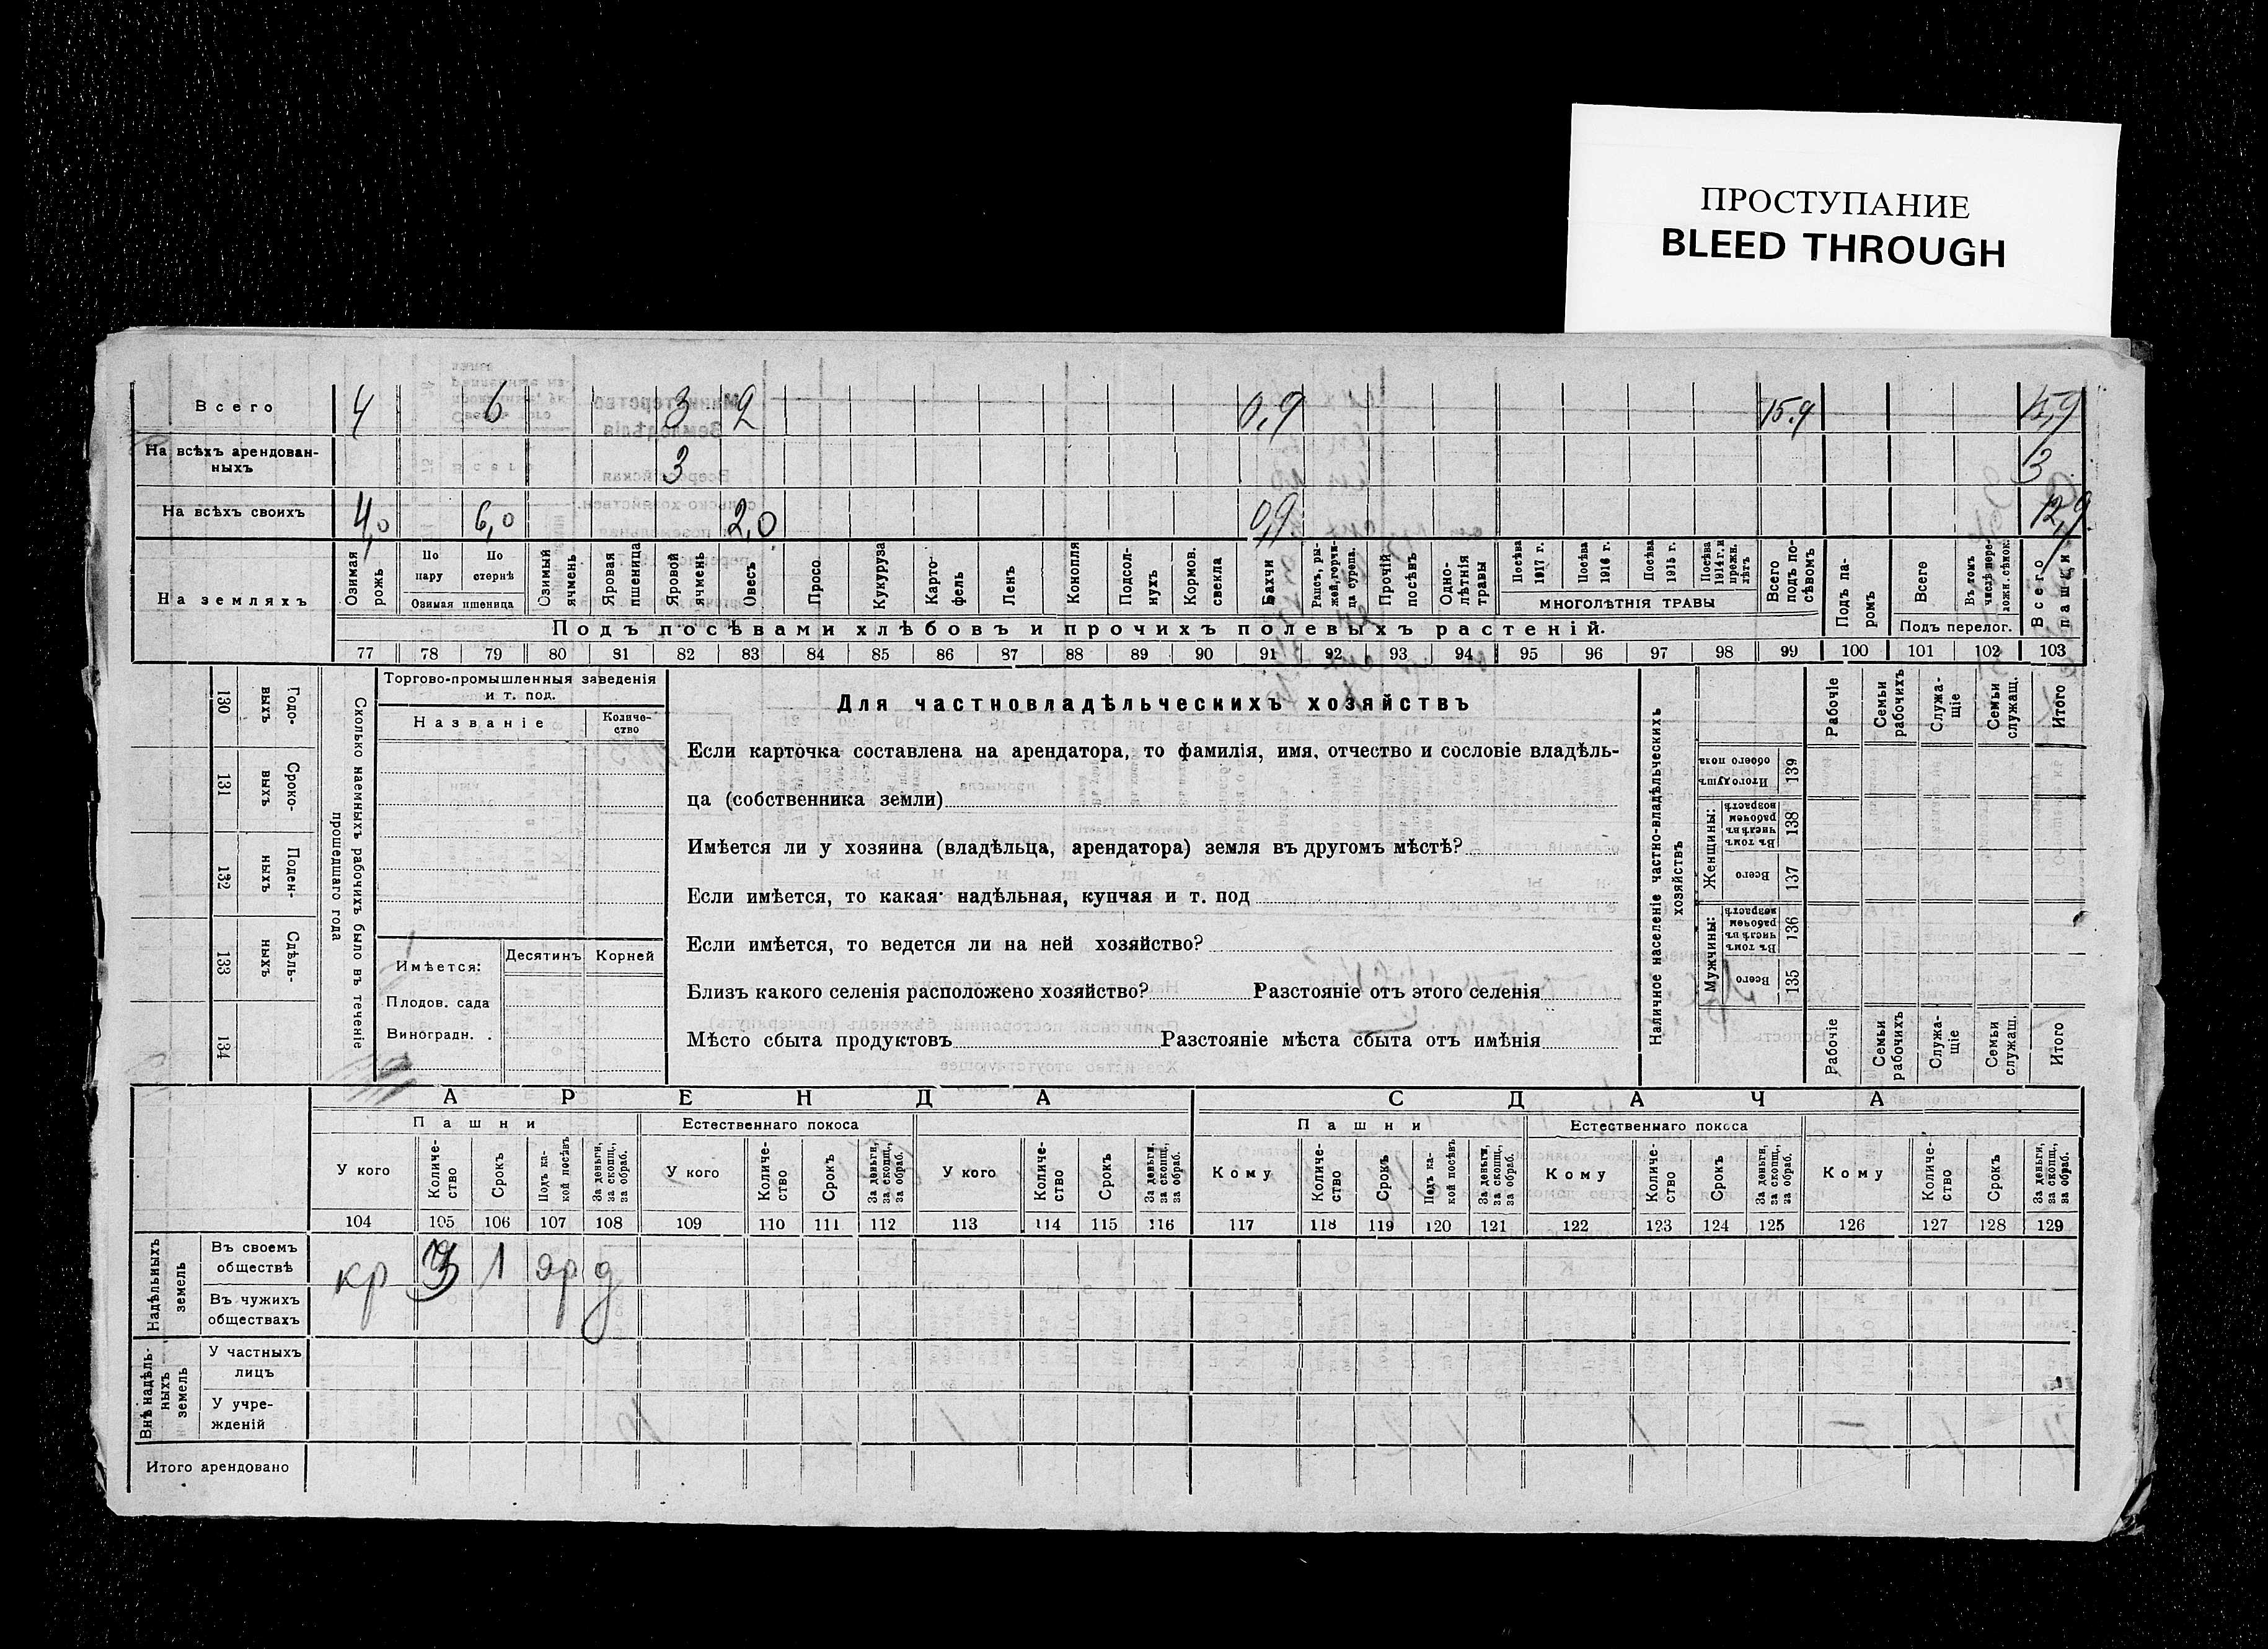 ПРОСТУПАНИЕ
BLEED THROUGH
Всего 4 6 3 2 0,9 15.9 15,9
На всѣхъ арендован-
ныхъ 3 3
На всѣхъ своихъ 4,0 6,0 2,0 0,9 12,9
На земляхъ
Озимая рожь
По пару
По стернѣ
Озимая пшеница
Озимый ячмень
Яровая пшеница
Яровой ячмень
Овесъ
Просо.
Кукуруза
Карто-
фель
Ленъ
Конопля
Подсол-
нухъ
Кормов. свекла
Бахчи
Рапсъ, ры-
жей, горчи-
ца сурепа.
Прочій посѣвъ
Одно-
лѣтнія травы
Посѣва 1917 г.
Посѣва 1916 г.
Посѣва 1915 г.
Посѣва 1914 г. и прежн. лѣтъ
МНОГОЛѢТНІЯ ТРАВЫ
Всего подъ по-
сѣвомъ
Подъ па-
ромъ
Всего
Въ томъ числѣ пере-
ложн сѣнок.
Подъ перелог.
Всего пашни
Подъ посѣвами хлѣбовъ и прочихъ полевыхъ растеній.
77 78 79 80 81 82 83 84 85 86 87 88 89 90 91 92 93 94 95 96 97 98 99 100 101 102 103
130 Годо-
выхъ
131 Сроко-
выхъ
132 Поден-
ныхъ
133 Сдѣль-
ныхъ
134
Сколько наемныхъ рабочихъ было въ теченіе
прошедшаго года
Торгово-промышленныя заведенія
и т. под.
Названіе Количе-
ство
Имѣется: Десятинъ Корней
Плодов. сада
Виноградн.
Для частновладѣльческихъ хозяйствъ
Если карточка составлена на арендатора, то фамилія, имя, отчество и сословіе владѣль-
ца (собственника земли)
Имѣется ли у хозяина (владѣльца, арендатора) земля въ другомъ мѣстѣ?
Если имѣется, то какая· надѣльная, купчая и т. под
Если имѣется, то ведется ли на ней хозяйство?
Близъ какого селенія расположено хозяйство? Разстояніе отъ этого селенія
Мѣсто сбыта продуктовъ Разстояніе мѣста сбыта отъ имѣнія
Наличное населеніе частно-владѣльческихъ
хозяйствъ
Рабочіе
Семьи рабочихъ
Служа-
щіе
Семьи служащ.
Итого
Итого душъ обоего пола 139
Женщины:
Въ томъ числѣ въ рабочемъ возрастѣ 138
Всего 137
Мужчины:
Въ томъ числѣ въ рабочемъ возрастѣ 136
Всего 135
Рабочіе
Семьи рабочихъ
Служа-
щіе
Семьи служащ.
Итого
АРЕНДА СДАЧА
Пашни Естественнаго покоса Пашни Естественнаго покоса
У кого
Количе-
ство
Срокъ
Подъ ка-
кой посѣвъ
За деньги, за скопщ., за обраб.
У кого
Количе-
ство
Срокъ
За деньги, за скопщ., за обраб.
У кого
Количе-
ство
Срокъ
За деньги, за скопщ., за обраб.
Кому
Количе-
ство
Срокъ
Подъ ка-
кой посѣвъ
За деньги, за скопщ., за обраб.
Кому
Количе-
ство
Срокъ
За деньги, за скопщ., за обраб.
Кому
Количе-
ство
Срокъ
За деньги, за скопщ., за обраб.
104 105 106 107 108 109 110 111 112 113 114 115 116 117 118 119 120 121 122 123 124 125 126 127 128 129
Надѣльныхъ земель
Въ своемъ
обществѣ
кр 3 1 яр д
Въ чужихъ
обществахъ
Внѣ надѣль-
ныхъ земель
У частныхъ
лицъ
У учре-
жденій
Итого арендовано